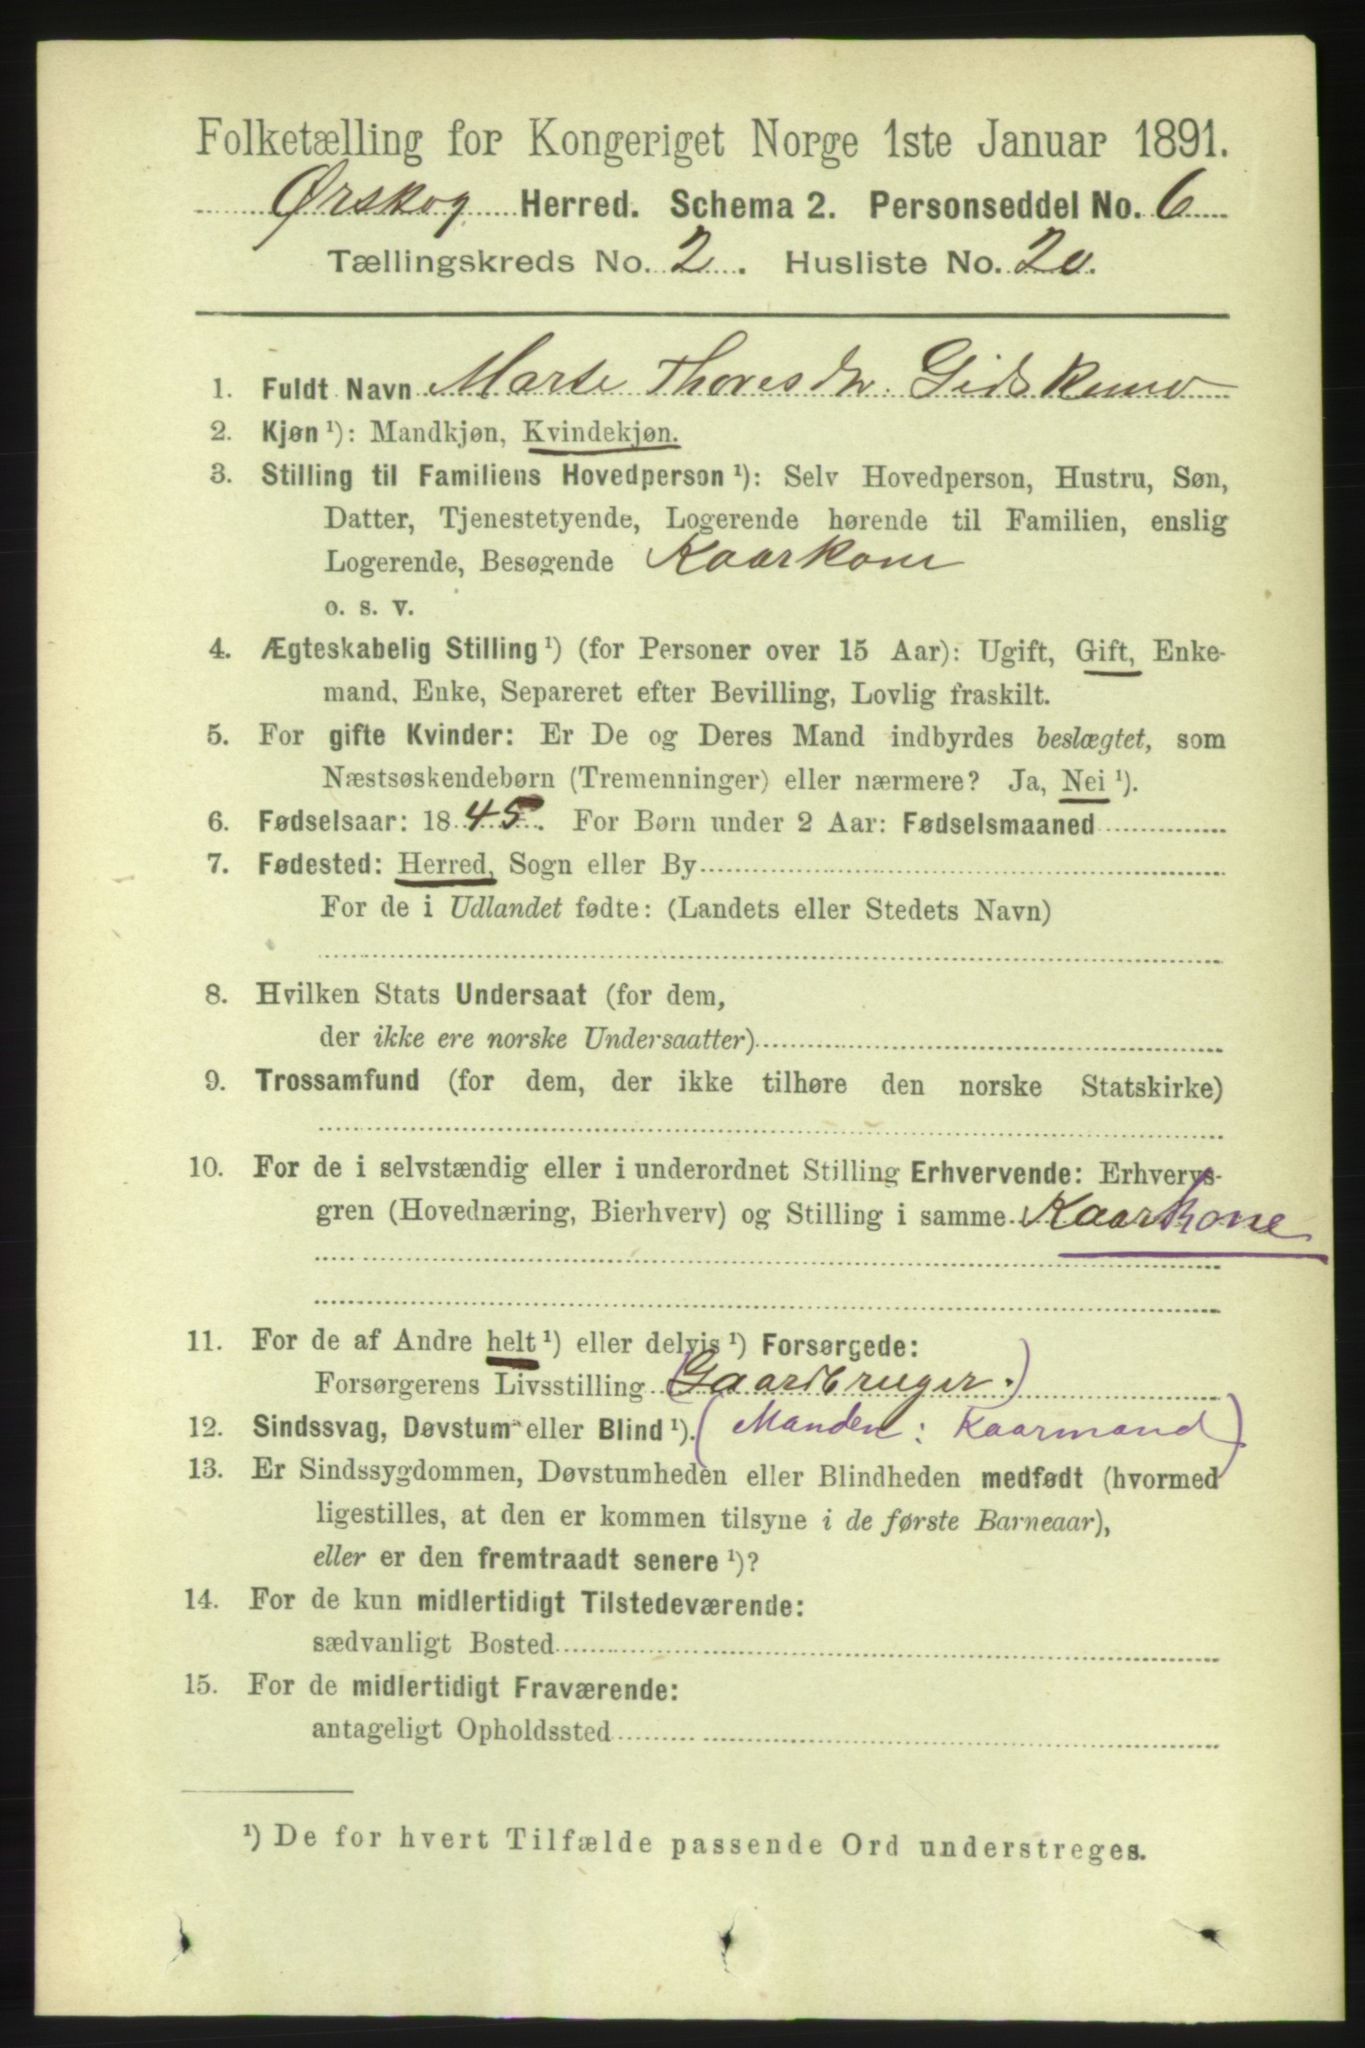 Folketælling for Kongeriget Norge 1ste Januar 1891.
Ørskog Herred. Schema 2. Personseddel No. 6
Tællingskreds No. 2. Husliste No. 20.
1. Fuldt Navn Marte Thoresdtr. Gids
2. Kjøn ¹): Mandkjøn, Kvindekjøn.
3. Stilling til Familiens Hovedperson ¹): Selv Hovedperson, Hustru, Søn,
Datter, Tjenestetyende, Logerende hørende til Familien, enslig
Logerende, Besøgende Kaarkone
o. s. v.
4. Ægteskabelig Stilling ¹) (for Personer over 15 Aar): Ugift, Gift, Enke-
mand, Enke, Separeret efter Bevilling, Lovlig fraskilt.
5. For gifte Kvinder: Er De og Deres Mand indbyrdes beslægtet, som
Næstsøskendebørn (Tremenninger) eller nærmere? Ja, Nei ¹).
6. Fødselsaar: 1845. For Børn under 2 Aar: Fødselsmaaned
7. Fødested: Herred, Sogn eller By
For de i Udlandet fødte: (Landets eller Stedets Navn)
8. Hvilken Stats Undersaat (for dem,
der ikke ere norske Undersaatter)
9. Trossamfund (for dem, der ikke tilhøre den norske Statskirke)
10. For de i selvstændig eller i underordnet Stilling Erhvervende: Erhvervs-
gren (Hovednæring, Bierhverv) og Stilling i samme. Kaarkone
11. For de af Andre helt ¹) eller delvis ¹) Forsørgede:
Forsørgerens Livsstilling (Gaardbruger.)
12. Sindssvag, Døvstum eller Blind ¹). (Manden: Kaarmand)
13. Er Sindssygdommen, Døvstumheden eller Blindheden medfødt (hvormed
ligestilles, at den er kommen tilsyne i de første Barneaar),
eller er den fremtraadt senere ¹)?
14. For de kun midlertidigt Tilstedeværende:
sædvanligt Bosted
15. For de midlertidigt Fraværende:
antageligt Opholdssted
¹) De for hvert Tilfælde passende Ord understreges.